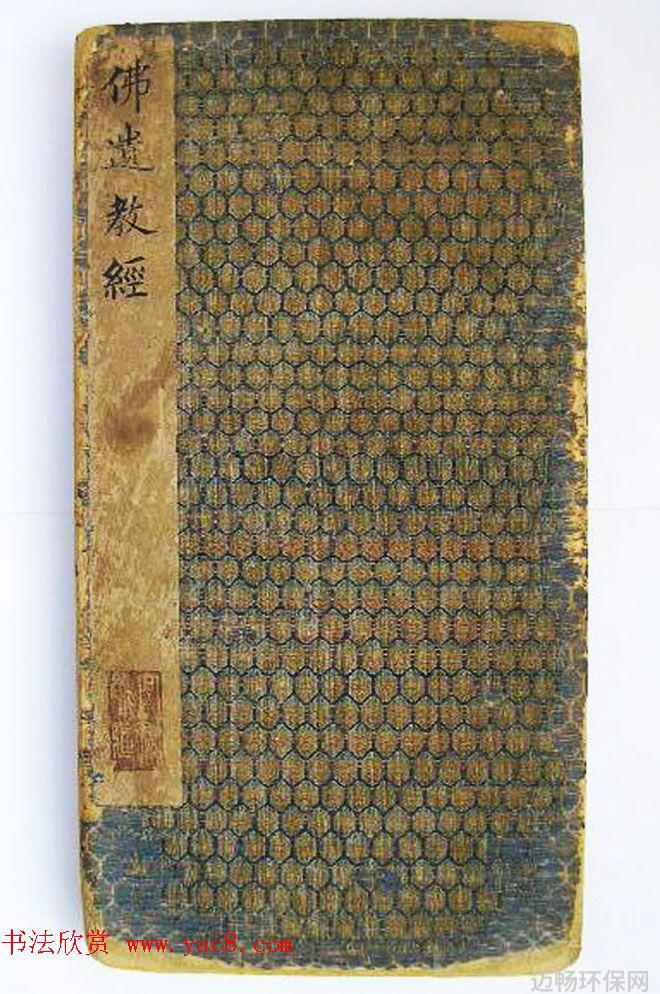 佛遺教經
书法欣赏 www.yac8.com
迈畅环保网